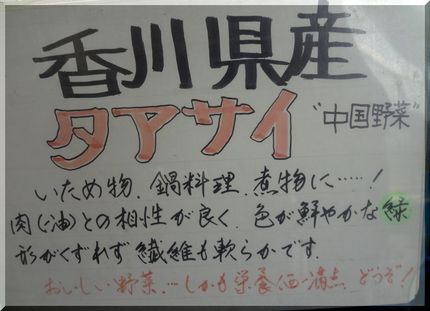 香川県産
タアサイ "中国野菜"
いため物、鍋料理、煮物に……!
肉(油)との相性が良く、色が鮮やかな緑
形がくずれず繊維も軟らかです.
おいしい野菜…しかも栄養価満点 どうぞ!